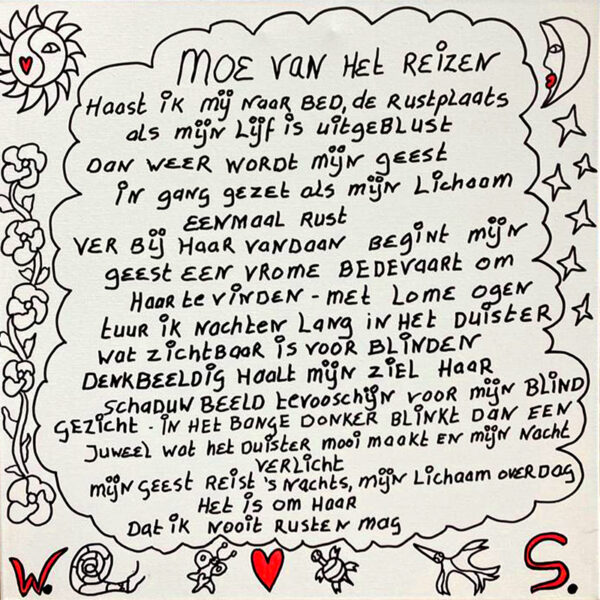 MOE VAN HET REIZEN
HAAST IK MIJ NAAR BED, DE RUSTPLAATS
ALS MIJN LIJF IS UITGEBLUST
DAN WEER WORDT MIJN GEEST
IN GANG GEZET ALS MIJN LICHAAM
EENMAAL RUST
VER BIJ HAAR VANDAAN BEGINT MIJN
GEEST EEN VROME BEDEVAART OM
HAAR TE VINDEN - MET LOME OGEN
TUUR IK NACHTEN LANG IN HET DUISTER
WAT ZICHTBAAR IS VOOR BLINDEN
DENKBEELDIG HAALT MIJN ZIEL HAAR
SCHADUW BEELD TEVOOSCHIJN VOOR MIJN BLIND
GEZICHT - IN HET BANGE DONKER BLINKT DAN EEN
JUWEEL WAT HET DUISTER MOOI MAAKT EN MIJN NACHT
VERLICHT
MIJN GEEST REIST 'S NACHTS, MIJN LICHAAM OVERDAG
HET IS OM HAAR
DAT IK NOOIT RUSTEN MAG
W. S.